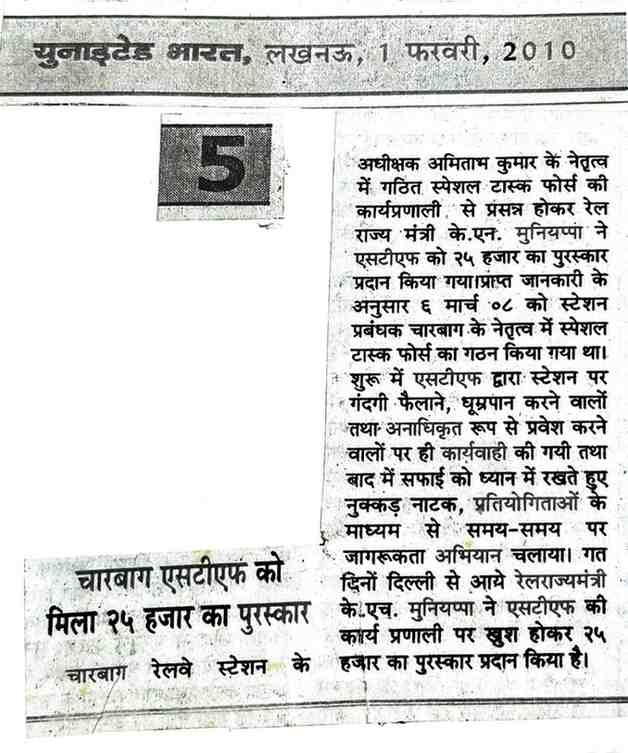 युनाइटेड भारत, लखनऊ, 1 फरवरी, 2010
5
चारबाग एसटीएफ को
मिला २५ हजार का पुरस्कार
चारबाग रेलवे स्टेशन के
अधीक्षक अमिताभ कुमार के नेतृत्व
में गठित स्पेशल टास्क फोर्स की
कार्यप्रणाली से प्रसन्न होकर रेल
राज्य मंत्री के.एन. मुनियप्पा ने
एसटीएफ को २५ हजार का पुरस्कार
प्रदान किया गया।प्राप्त जानकारी के
अनुसार ६ मार्च ०८ को स्टेशन
प्रबंधक चारबाग के नेतृत्व में स्पेशल
टास्क फोर्स का गठन किया गया था।
शुरू में एसटीएफ द्वारा स्टेशन पर
गंदगी फैलाने, धूम्रपान करने वालों
तथा अनाधिकृत रूप से प्रवेश करने
वालों पर ही कार्यवाही की गयी तथा
बाद में सफाई को ध्यान में रखते हुए
नुक्कड़ नाटक, प्रतियोगिताओं के
माध्यम से समय-समय पर
जागरूकता अभियान चलाया। गत
दिनों दिल्ली से आये रेलराज्यमंत्री
के.एच. मुनियप्पा ने एसटीएफ की
कार्य प्रणाली पर खुश होकर २५
हजार का पुरस्कार प्रदान किया है।